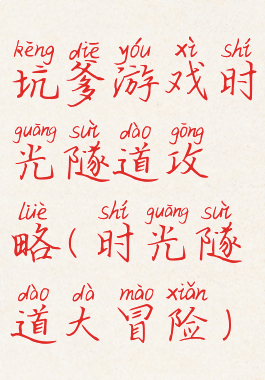 kēng diē yóu xì shí
坑爹游戏时
guāng suì dào gōng
光隧道攻
lüè shí guāng suì
略(时光隧
dào dà mào xiǎn
道大冒险)